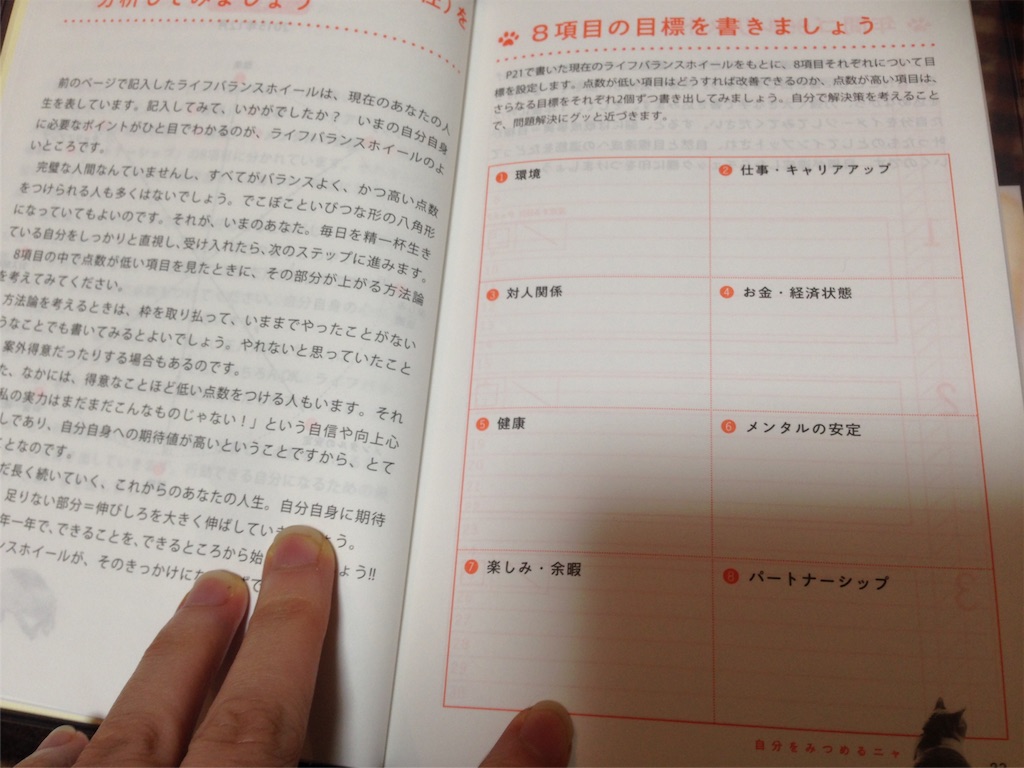 分析してみましょう
を
前のページで記入したライフバランスホイールは、現在のあなたの人
生を表しています。記入してみて、いかがでしたか？　いまの自分自身
に必要なポイントがひと目でわかるのが、ライフバランスホイールのよ
いところです。
完璧な人間なんていませんし、すべてがバランスよく、かつ高い点数
をつけられる人も多くはないでしょう。でこぼこといびつな形の八角形
になっていてもよいのです。それが、いまのあなた。毎日を精一杯生き
ている自分をしっかりと直視し、受け入れたら、次のステップに進みます。
8項目の中で点数が低い項目を見たときに、その部分が上がる方法論
を考えてみてください。
方法論を考えるときは、枠を取り払って、いままでやったことがない
うなことでも書いてみるとよいでしょう。やれないと思っていたこと
案外得意だったりする場合もあるのです。
た、なかには、得意なことほど低い点数をつける人もいます。それ
私の実力はまだまだこんなものじゃない！」という自信や向上心
しであり、自分自身への期待値が高いということですから、とて
ことなのです。
だ長く続いていく、これからのあなたの人生。自分自身に期待
足りない部分＝伸びしろを大きく伸ばしていきましょう。
年一年で、できることを、できるところから始めましょう!!
ンスホイールが、そのきっかけにな
8項目の目標を書きましょう
P21で書いた現在のライフバランスホイールをもとに、8項目それぞれについて目
標を設定します。点数が低い項目はどうすれば改善できるのか、点数が高い項目は、
さらなる目標をそれぞれ2個ずつ書き出してみましょう。自分で解決策を考えること
で、問題解決にグッと近づきます。
1 環境
2 仕事・キャリアアップ
3 対人関係
4 お金・経済状態
5 健康
6 メンタルの安定
7 楽しみ・余暇
8 パートナーシップ
自分をみつめるニャ